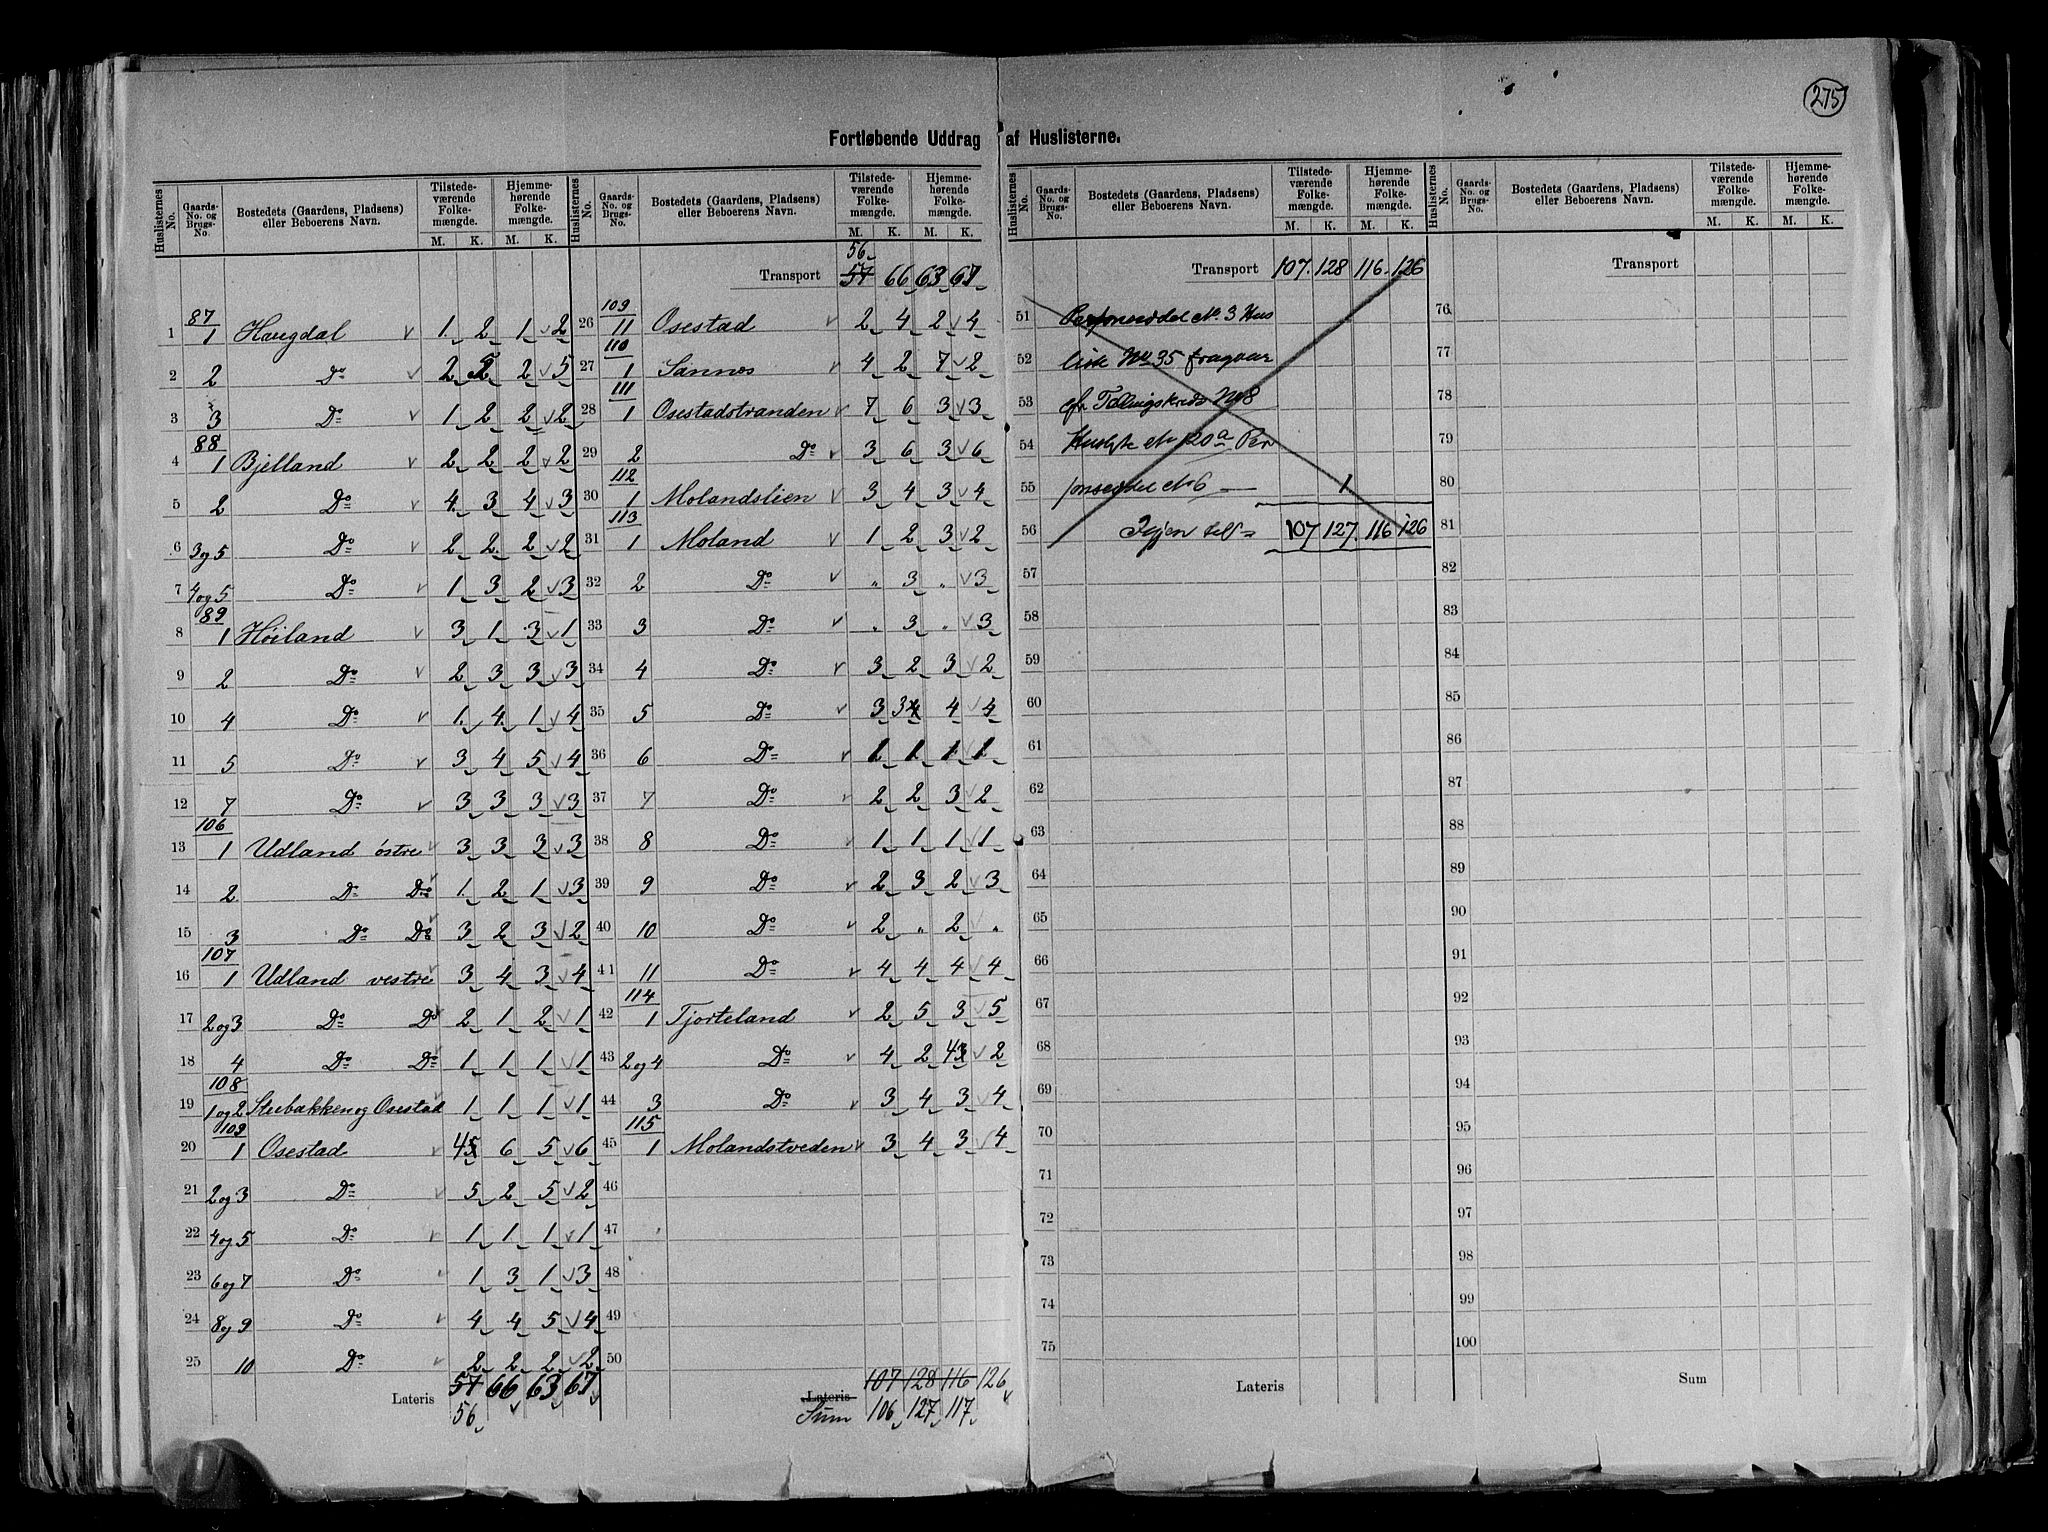 275
Fortløbende Uddrag af Huslisterne.
Huslisternes No. Gaards-No. og Brugs-No. Bostedets (Gaardens, Pladsens) eller Beboerens Navn. Tilstedeværende Folkemængde. M. K. Hjemmehørende Folkemængde. M. K.
1 87/1 Haugdal 1 2 1 2
2 2 Do 2 5 2 5
3 3 Do 1 2 2 2
4 88/1 Bjelland 2 2 2 2
5 2 Do 4 3 4 3
6 3 og 5 Do 2 2 2 2
7 4 og 5 Do 1 3 2 3
8 89/1 Höiland 3 1 3 1
9 2 Do 2 3 3 3
10 4 Do 1 4 1 4
11 5 Do 3 4 5 4
12 7 Do 3 3 3 3
13 106/1 Udland östre 3 3 3 3
14 2 Do Do 1 2 1 3
15 3 Do Do 3 2 3 2
16 107/1 Udland vestre 3 4 3 4
17 2 og 3 Do Do 2 1 2 1
18 4 Do Do 1 1 1 1
19 108/1 og 2 Stubakken og Osestad 1 1 1 1
20 109/1 Osestad 4 5 6 5 6
21 2 og 3 Do 5 2 5 2
22 4 og 5 Do 1 1 1 1
23 6 og 7 Do 1 3 1 3
24 8 og 9 Do 4 4 5 4
25 10 Do 2 2 2 2
Lateris 57 66 63 67
56
Huslisternes No. Gaards-No. og Brugs-No. Bostedets (Gaardens, Pladsens) eller Beboerens Navn. Tilstedeværende Folkemængde. M. K. Hjemmehørende Folkemængde. M. K.
56
Transport 57 66 63 67
26 109/11 Osestad 2 4 2 4
27 110/1 Sannes 4 2 7 2
28 111/1 Osestadstranden 7 6 3 3
29 2 Do 3 6 3 6
30 112/1 Molandslien 3 4 3 4
31 113/1 Moland 1 2 3 2
32 2 Do " 3 " 3
33 3 Do " 3 " 3
34 4 Do 3 2 3 2
35 5 Do 3 3 4 4 4
36 6 Do 1 1 1 1
37 7 Do 2 2 3 2
38 8 Do 1 1 1 1
39 9 Do 2 3 2 3
40 10 Do 2 " 2 "
41 11 Do 4 4 4 4
42 114/1 Tjorteland 2 5 3 5
43 2 og 4 Do 4 2 4 3 2
44 3 Do 3 4 3 4
45 115/1 Molandstveden 3 4 3 4
46
47
48
49
50
107 128 116 126
Lateris
Sum 106 127 117
Huslisternes No. Gaards-No. og Brugs-No. Bostedets (Gaardens, Pladsens) eller Beboerens Navn. Tilstedeværende Folkemængde. M. K. Hjemmehørende Folkemængde. M. K.
Transport 107 128 116 126
51 Personseddel No. 3 Hus
52 liste No 35 fragaar
53 cfr Tællingskreds No 8
54 Husliste No 120a Per
55 sonseddel No 6 1
56 Igjen 107 127 116 126
57
58
59
60
61
62
63
64
65
66
67
68
69
70
71
72
73
74
75
Lateris
Huslisternes No. Gaards-No. og Brugs-No. Bostedets (Gaardens, Pladsens) eller Beboerens Navn. Tilstedeværende Folkemængde. M. K. Hjemmehørende Folkemængde. M. K.
Transport
76
77
78
79
80
81
82
83
84
85
86
87
88
89
90
91
92
93
94
95
96
97
98
99
100
Sum